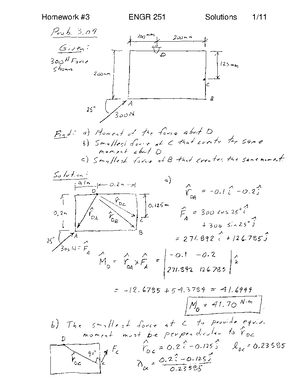 Homework #3 ENGR 251 Solutions 1/11
Prob. 3.09
Given:
300 N Force
shown
100mm 200mm
D
200mm
125mm
C
A B
25°
300N
Find: a) Moment of the force about D
b) Smallest force at C that creates the same
moment about D
c) Smallest force at B that creates the same moment
Solution:
a)
0.1m 0.2m
D
0.2m
0.125m
C
A B
25°
300N = F
r_DA = -0.1 i - 0.2 j
F_A = 300 cos 25° i
+ 300 sin 25° j
= 271.892 i + 126.785 j
M_D = r_DA x F_A = | -0.1 -0.2 |
| 271.892 126.785 |
= -12.6785 + 54.3784 = 41.6999
M_D = 41.70 N·m
b) The smallest force at C to provide equiv.
moment must be perpendicular to r_DC
D
90°
F_C
C
r_DC = 0.2 i - 0.125 j
l_DC = 0.23585
λ_DC = 0.2 i - 0.125 j
0.23585